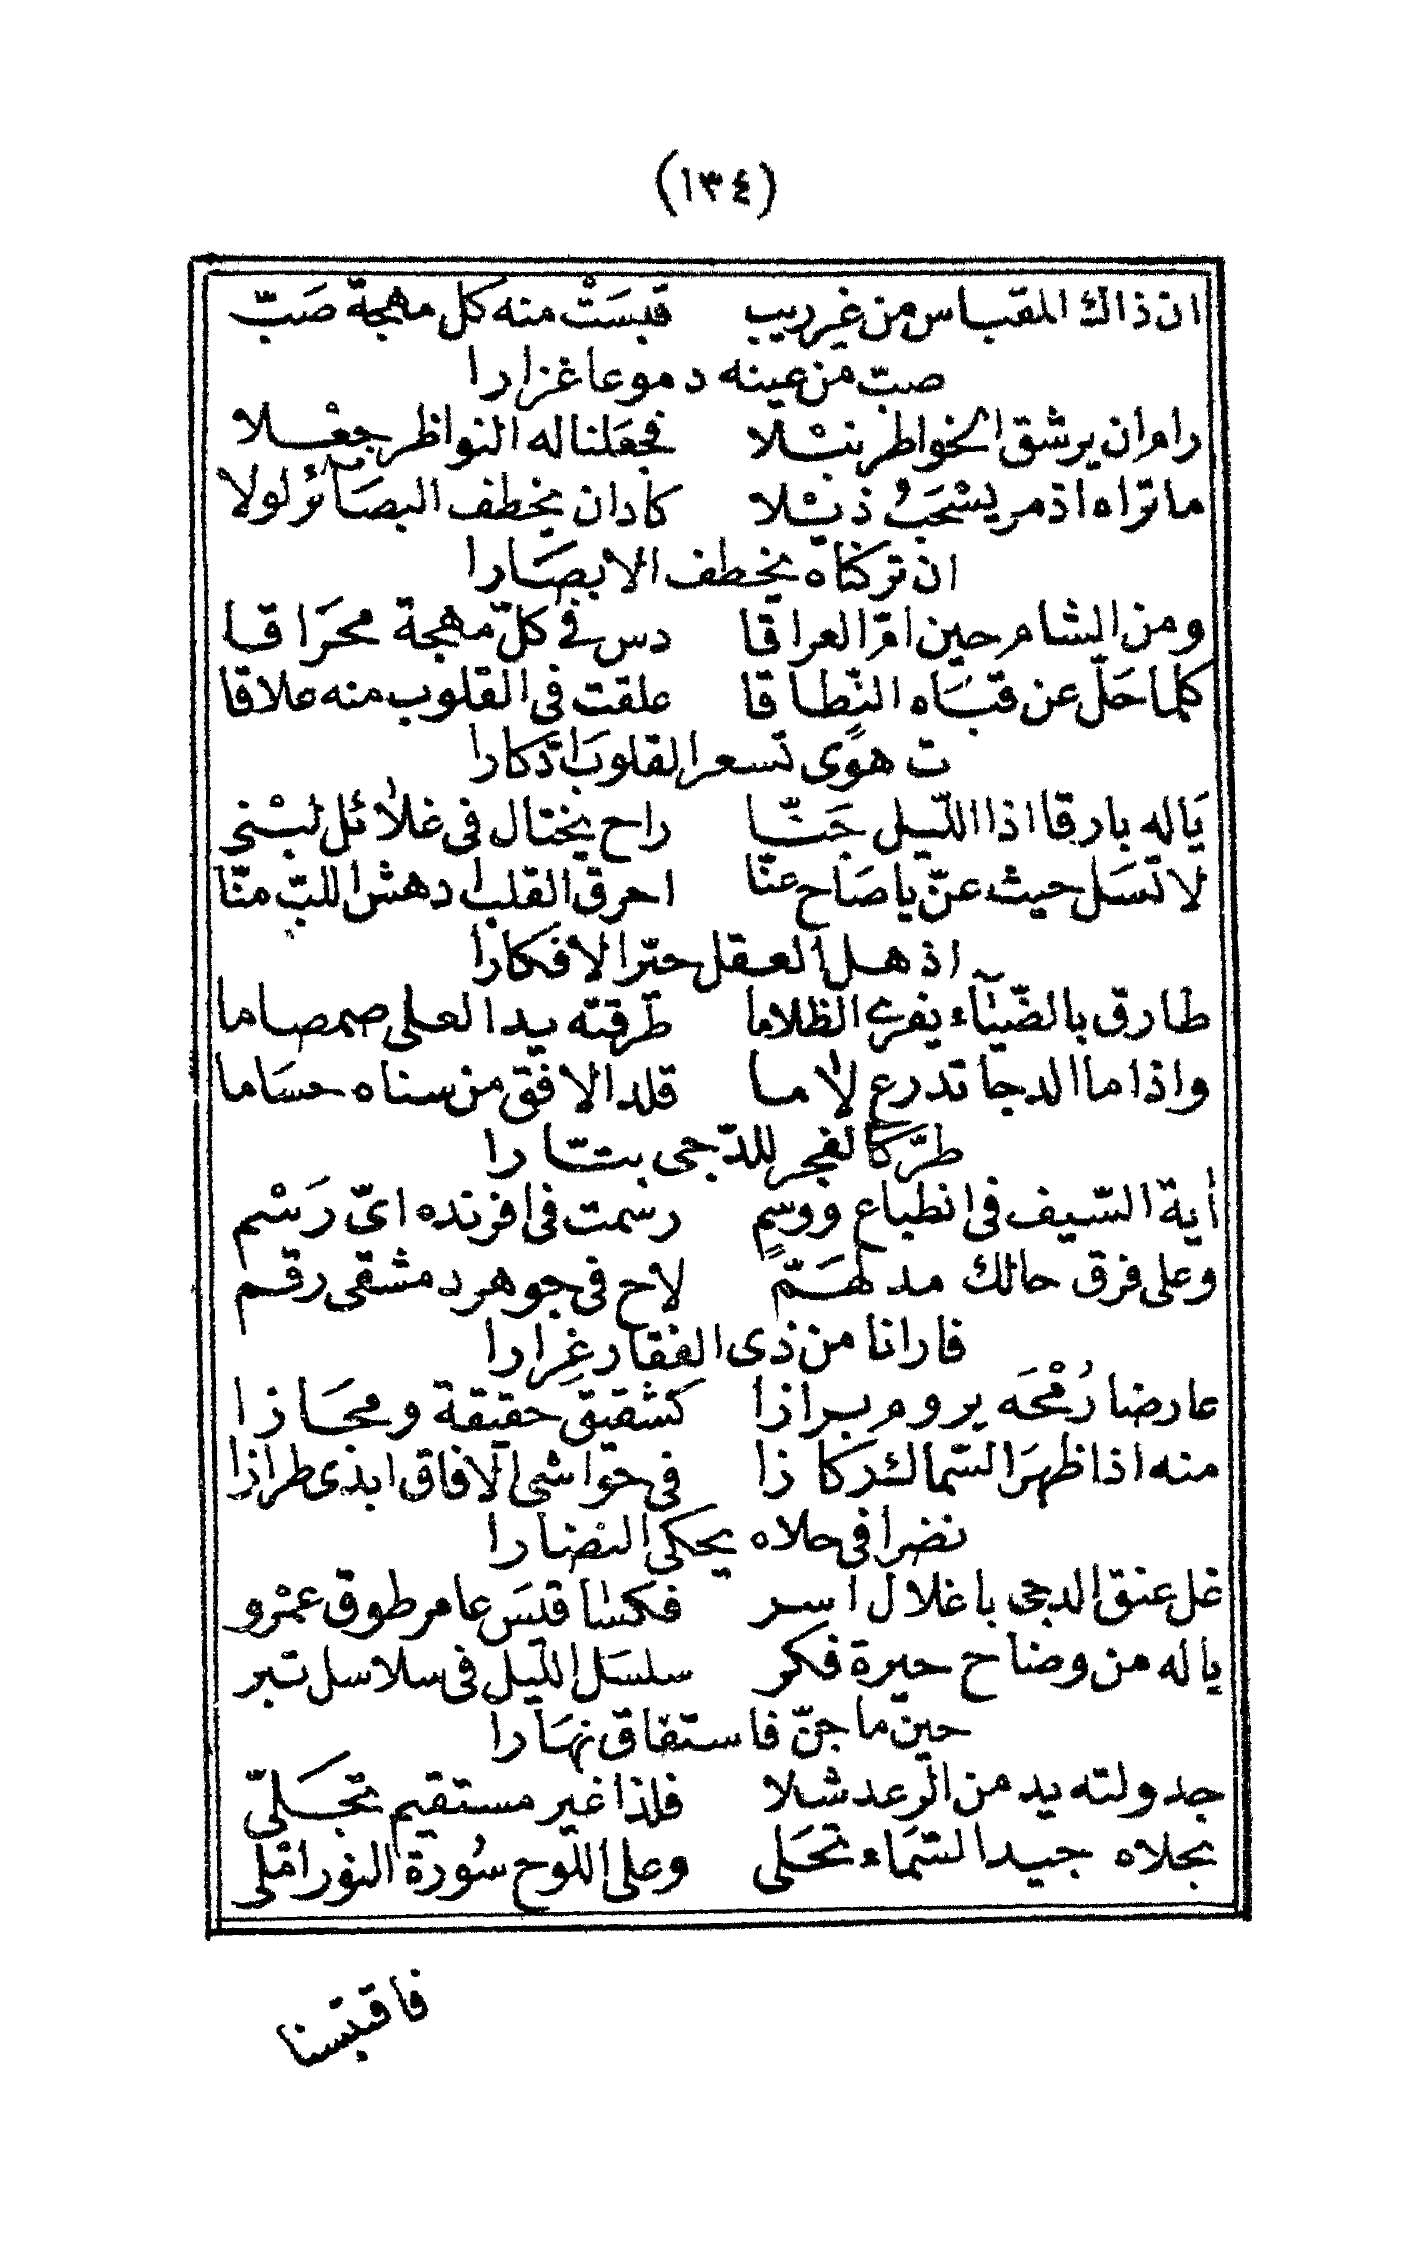 (١٣٤)
ان ذاك المقباس من غير ريب قبسَتْ منه كل مهجة صَبّ
صبّ من عينه دموعا غزارا
رام ان يرشق الخواطر نبْلا فجعَلنا له النواظر جعْلا
ما تراه اذ مر يسْحَبُ ذيْلا كاد ان يخطف البصَائر لولا
ان تركناه يخطف الابصَارا
ومن الشام حين امّ العراقا دس في كلّ مهجة محرَاقا
كلما حَلّ عن قبَاه النّطاقا علقت في القلوب منه علاقا
ت هوًى تسعر القلوبَ ادّكارا
يَا له بارقا اذا الليل جَنّا راح يختال في غلائل لبْنى
لا تسَل حيث عنّ يا صَاح عنّا احرق القلب ادهش اللبّ منّا
اذهل العقل حيّر الافكارا
طارق بالضّيَآء يفري الظلاما طرّقته يد العلى صمصاما
واذا ما الدجا تدرع لاما قلد الافق من سناه حسَاما
طرّ كالفجر للدّجى بتّارا
أية السّيف في انطباع ووسمٍ رسمت في افرنده ايّ رَسْم
وعلى فرق حالك مدلهَمّ لاح في جوهر دمشقي رقم
فارانا من ذي الفقار غِرارا
عارضا رُمْحَه يروم برازا كشقيق حقيقة ومجَازا
منه اذا ظهرَ السّماك ركازا في حوّاشي الآفاق ابذى طرازا
نضرا في حلاه يحكي النضارا
غل عنق الدجى باغلال اسر فكسَا قيسَ عامر طوق عمْرو
يا له من وضاح حيرة فكر سلسَل الليل في سلاسل تبر
حين ما جنّ فاستفاق نهَارا
جدولته يد من الرّعد شلا فلذا غير مستقيم تجَلىّ
بحلاه جيد السّمَاء تحَلى وعلى اللوح سُورة النور امْلى
فاقبَسنا